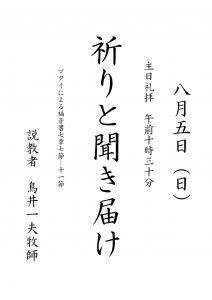 八月五日（日）
主日礼拝　午前十時三十分
祈りと聞き届け
マタイによる福音書七章七節―十一節
説教者　鳥井一夫牧師